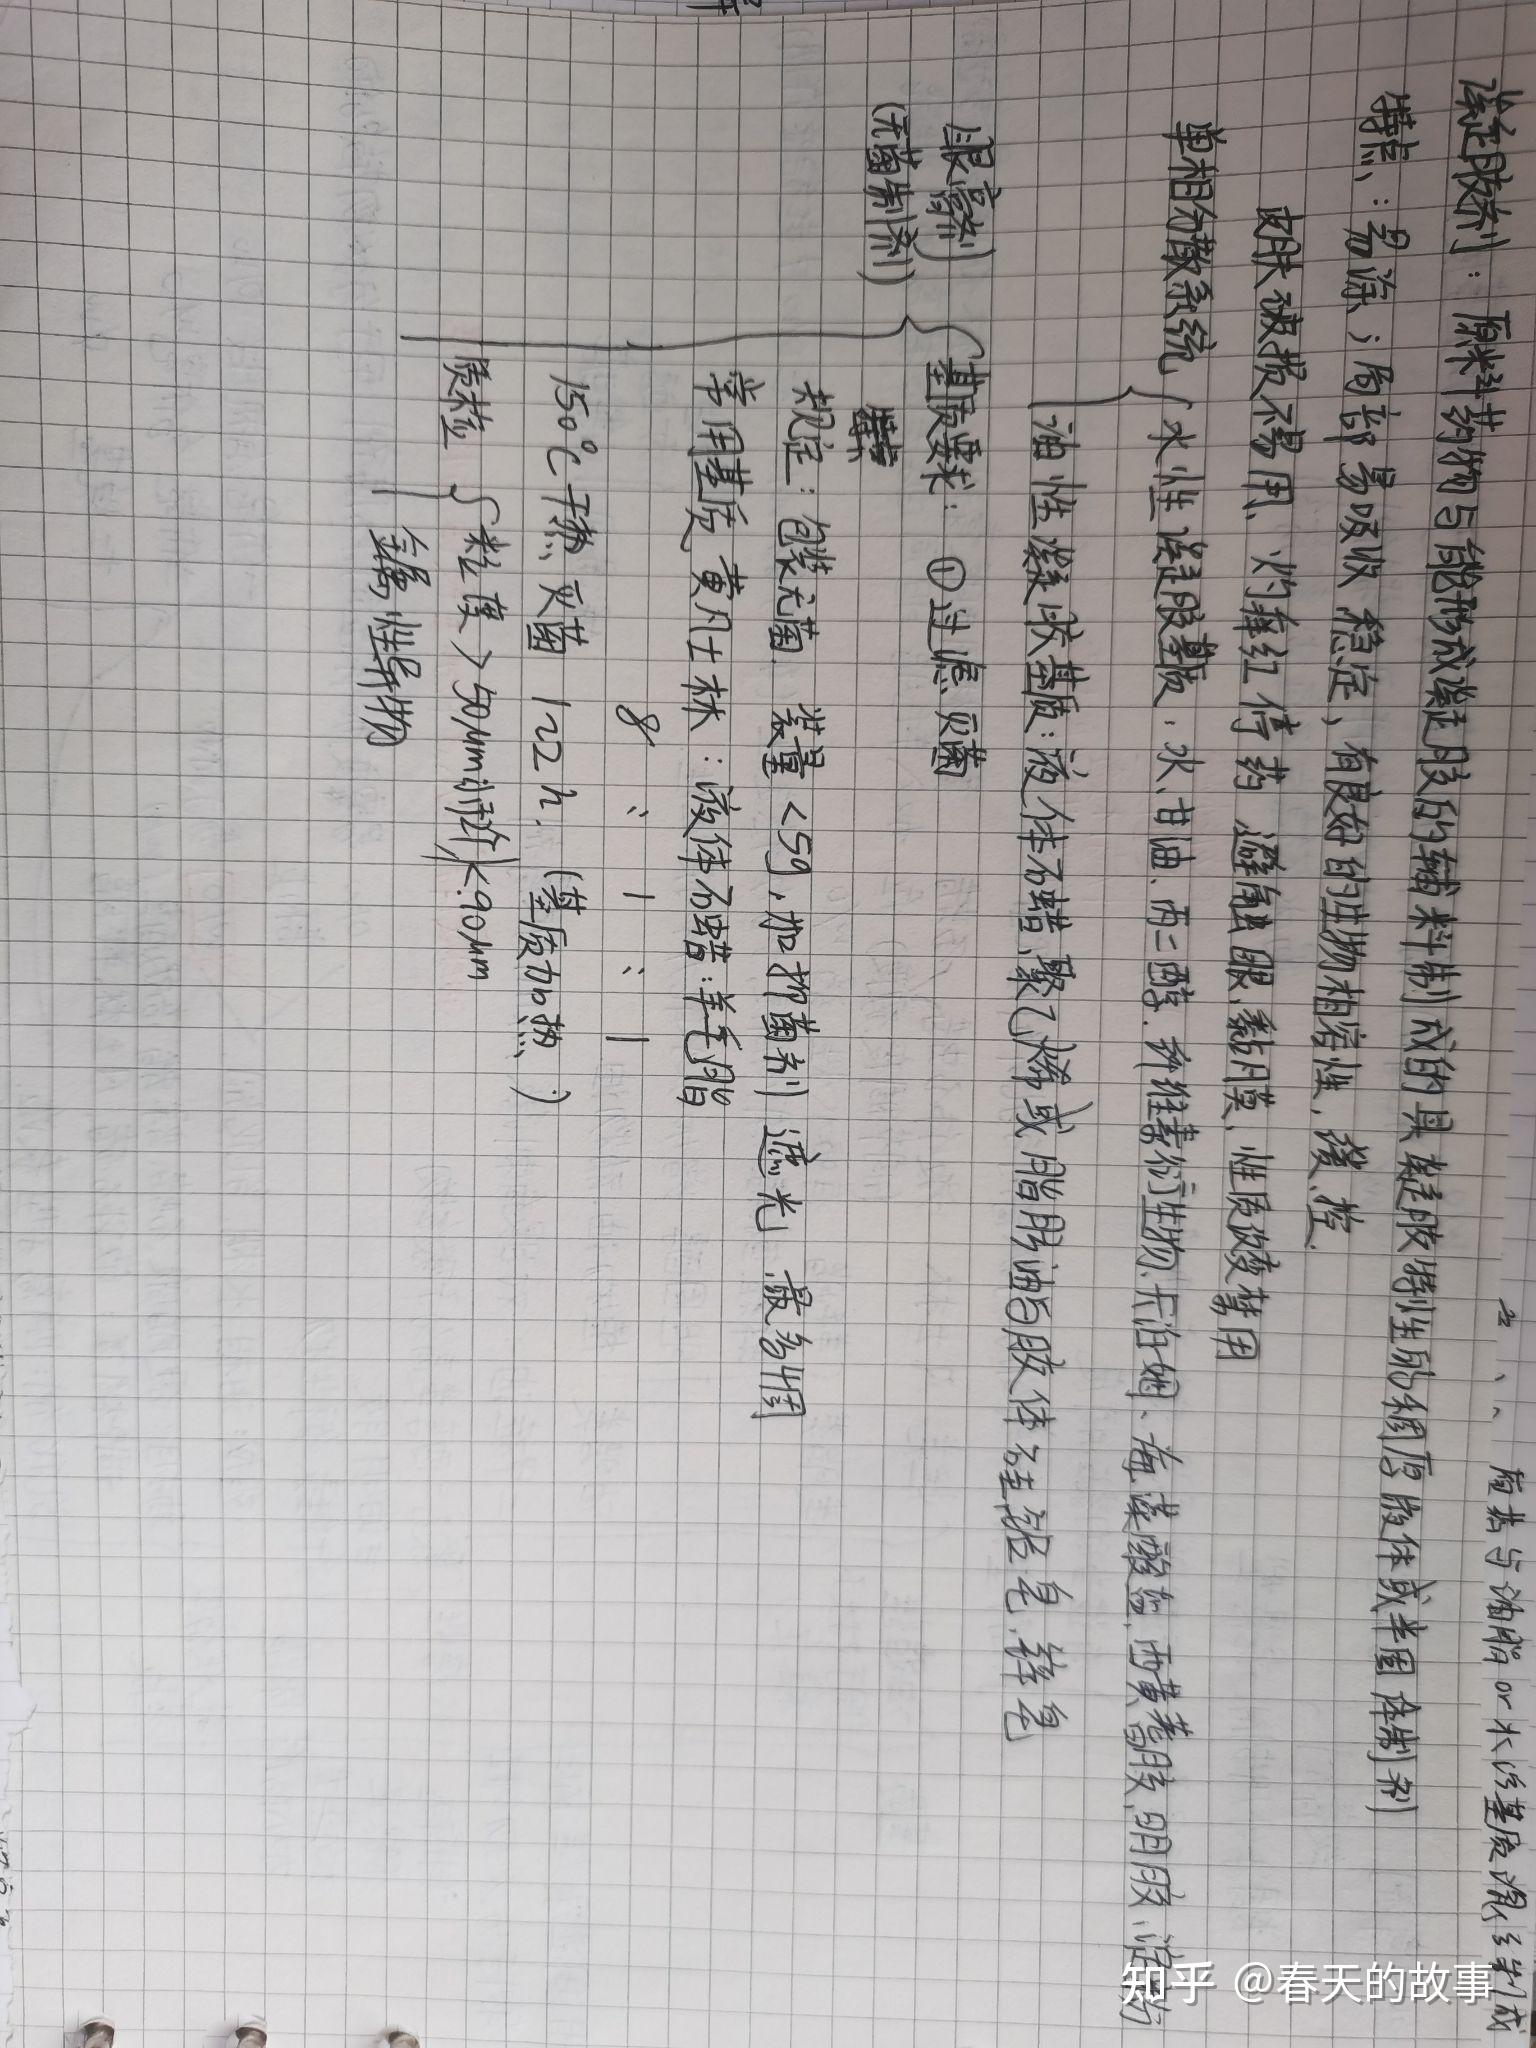 原药与油脂or水溶基质混匀制成
凝胶剂：原料药物与能形成凝胶的辅料制成的具凝胶特性的稠厚液体或半固体制剂
特点：易涂；局部易吸收 稳定，有良好的生物相容性，缓、控.
皮肤破损不易用、灼痛红停药 避免眼、黏膜、性质改变禁用
单相分散系统
水性凝胶基质：水、甘油、丙二醇、纤维素衍生物、卡泊姆、海藻酸盐、西黄蓍胶、明胶、淀粉
油性凝胶基质：液体石蜡、聚乙烯或脂肪油与胶体硅、铝皂、锌皂
眼膏剂
(无菌制剂)
基质要求：①过滤灭菌
规定：包装无菌、装量<5g，加抑菌剂 遮光
常用基质 黄凡士林：液体石蜡：羊毛脂
8 : 1 : 1
150℃干热灭菌 1~2h. (基质加热)
质检
粒度>50μm 2个<90μm
金属性异物
知乎 @春天的故事